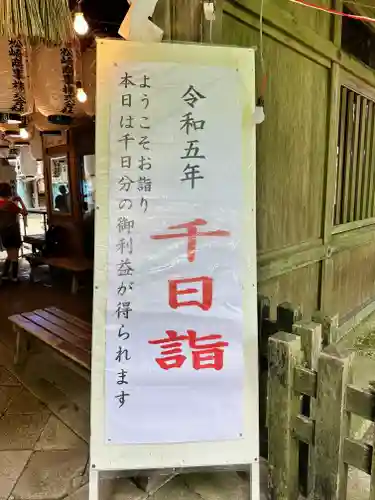 令和五年
千日詣
ようこそお詣り
本日は千日分の御利益が得られます